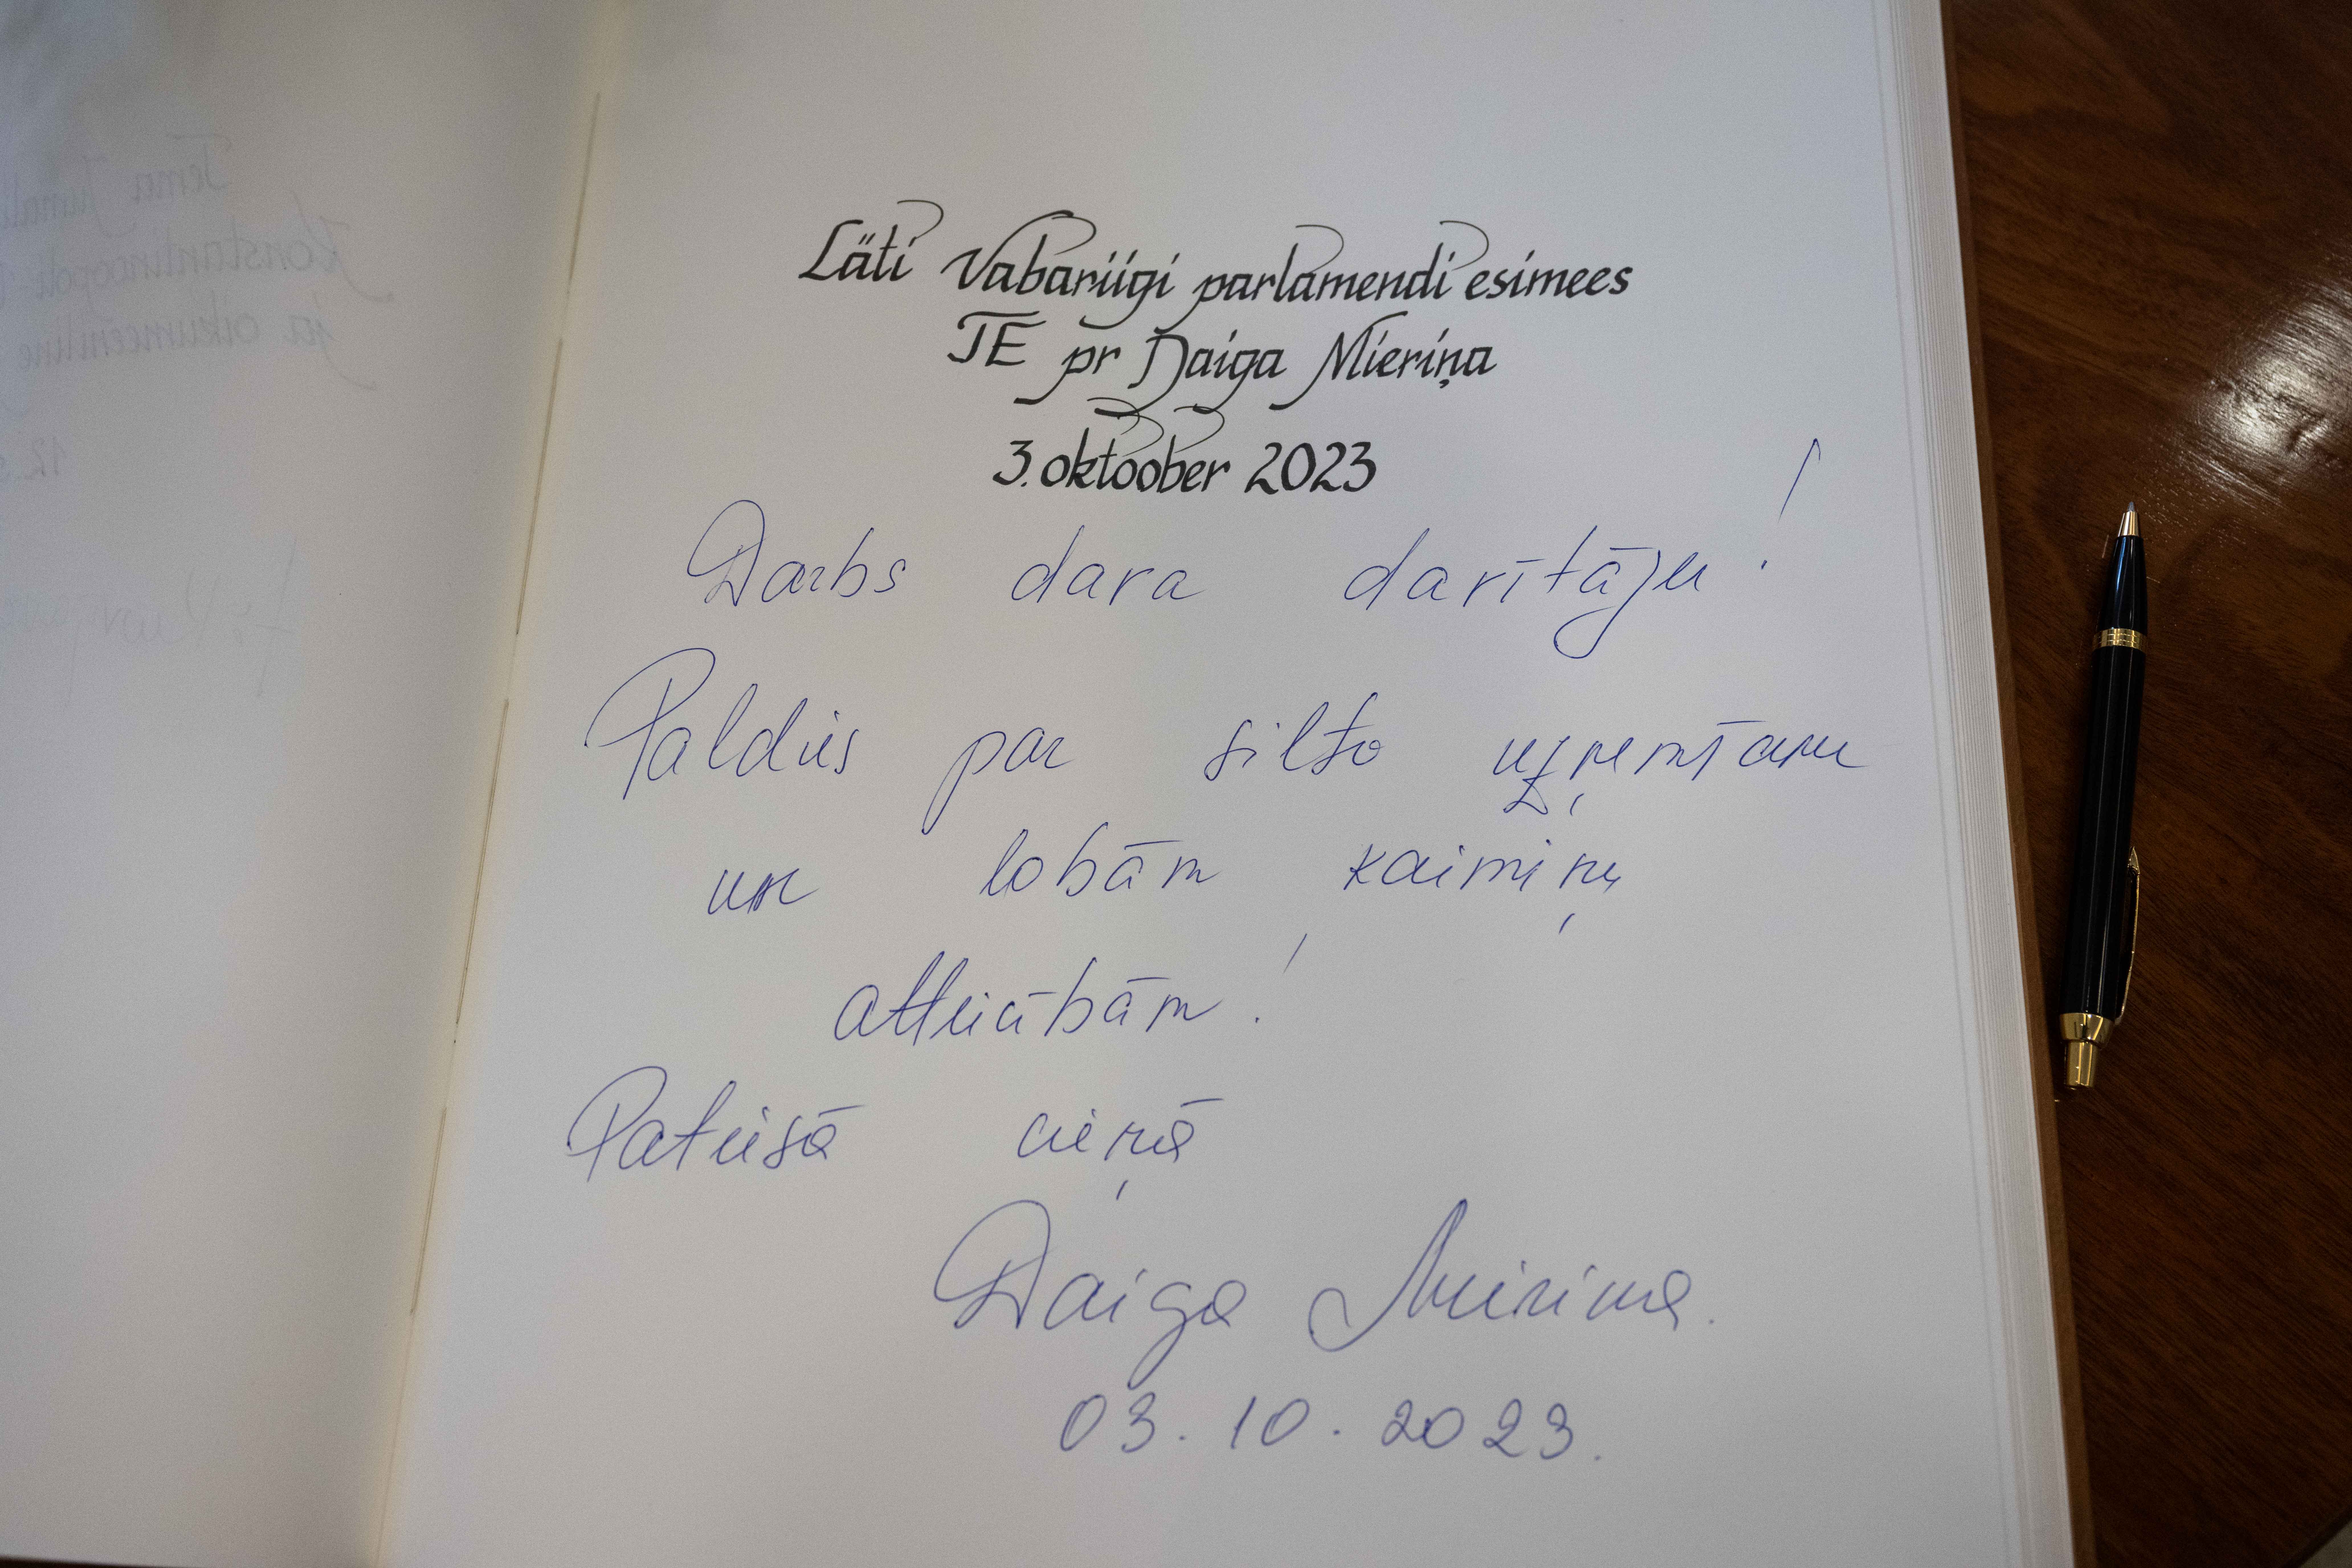 Läti Vabariigi parlamendi esimees
TE pr Daiga Mieriņa
3. oktoober 2023
Darbs dara darītāju!
Paldies par silto uzņemšanu
un labām kaimiņu
attiecībām!
Patiesā cieņā
Daiga Mieriņa.
03.10.2023.
Tema
Konstantinoopoli
ja oikumeeniline
12.